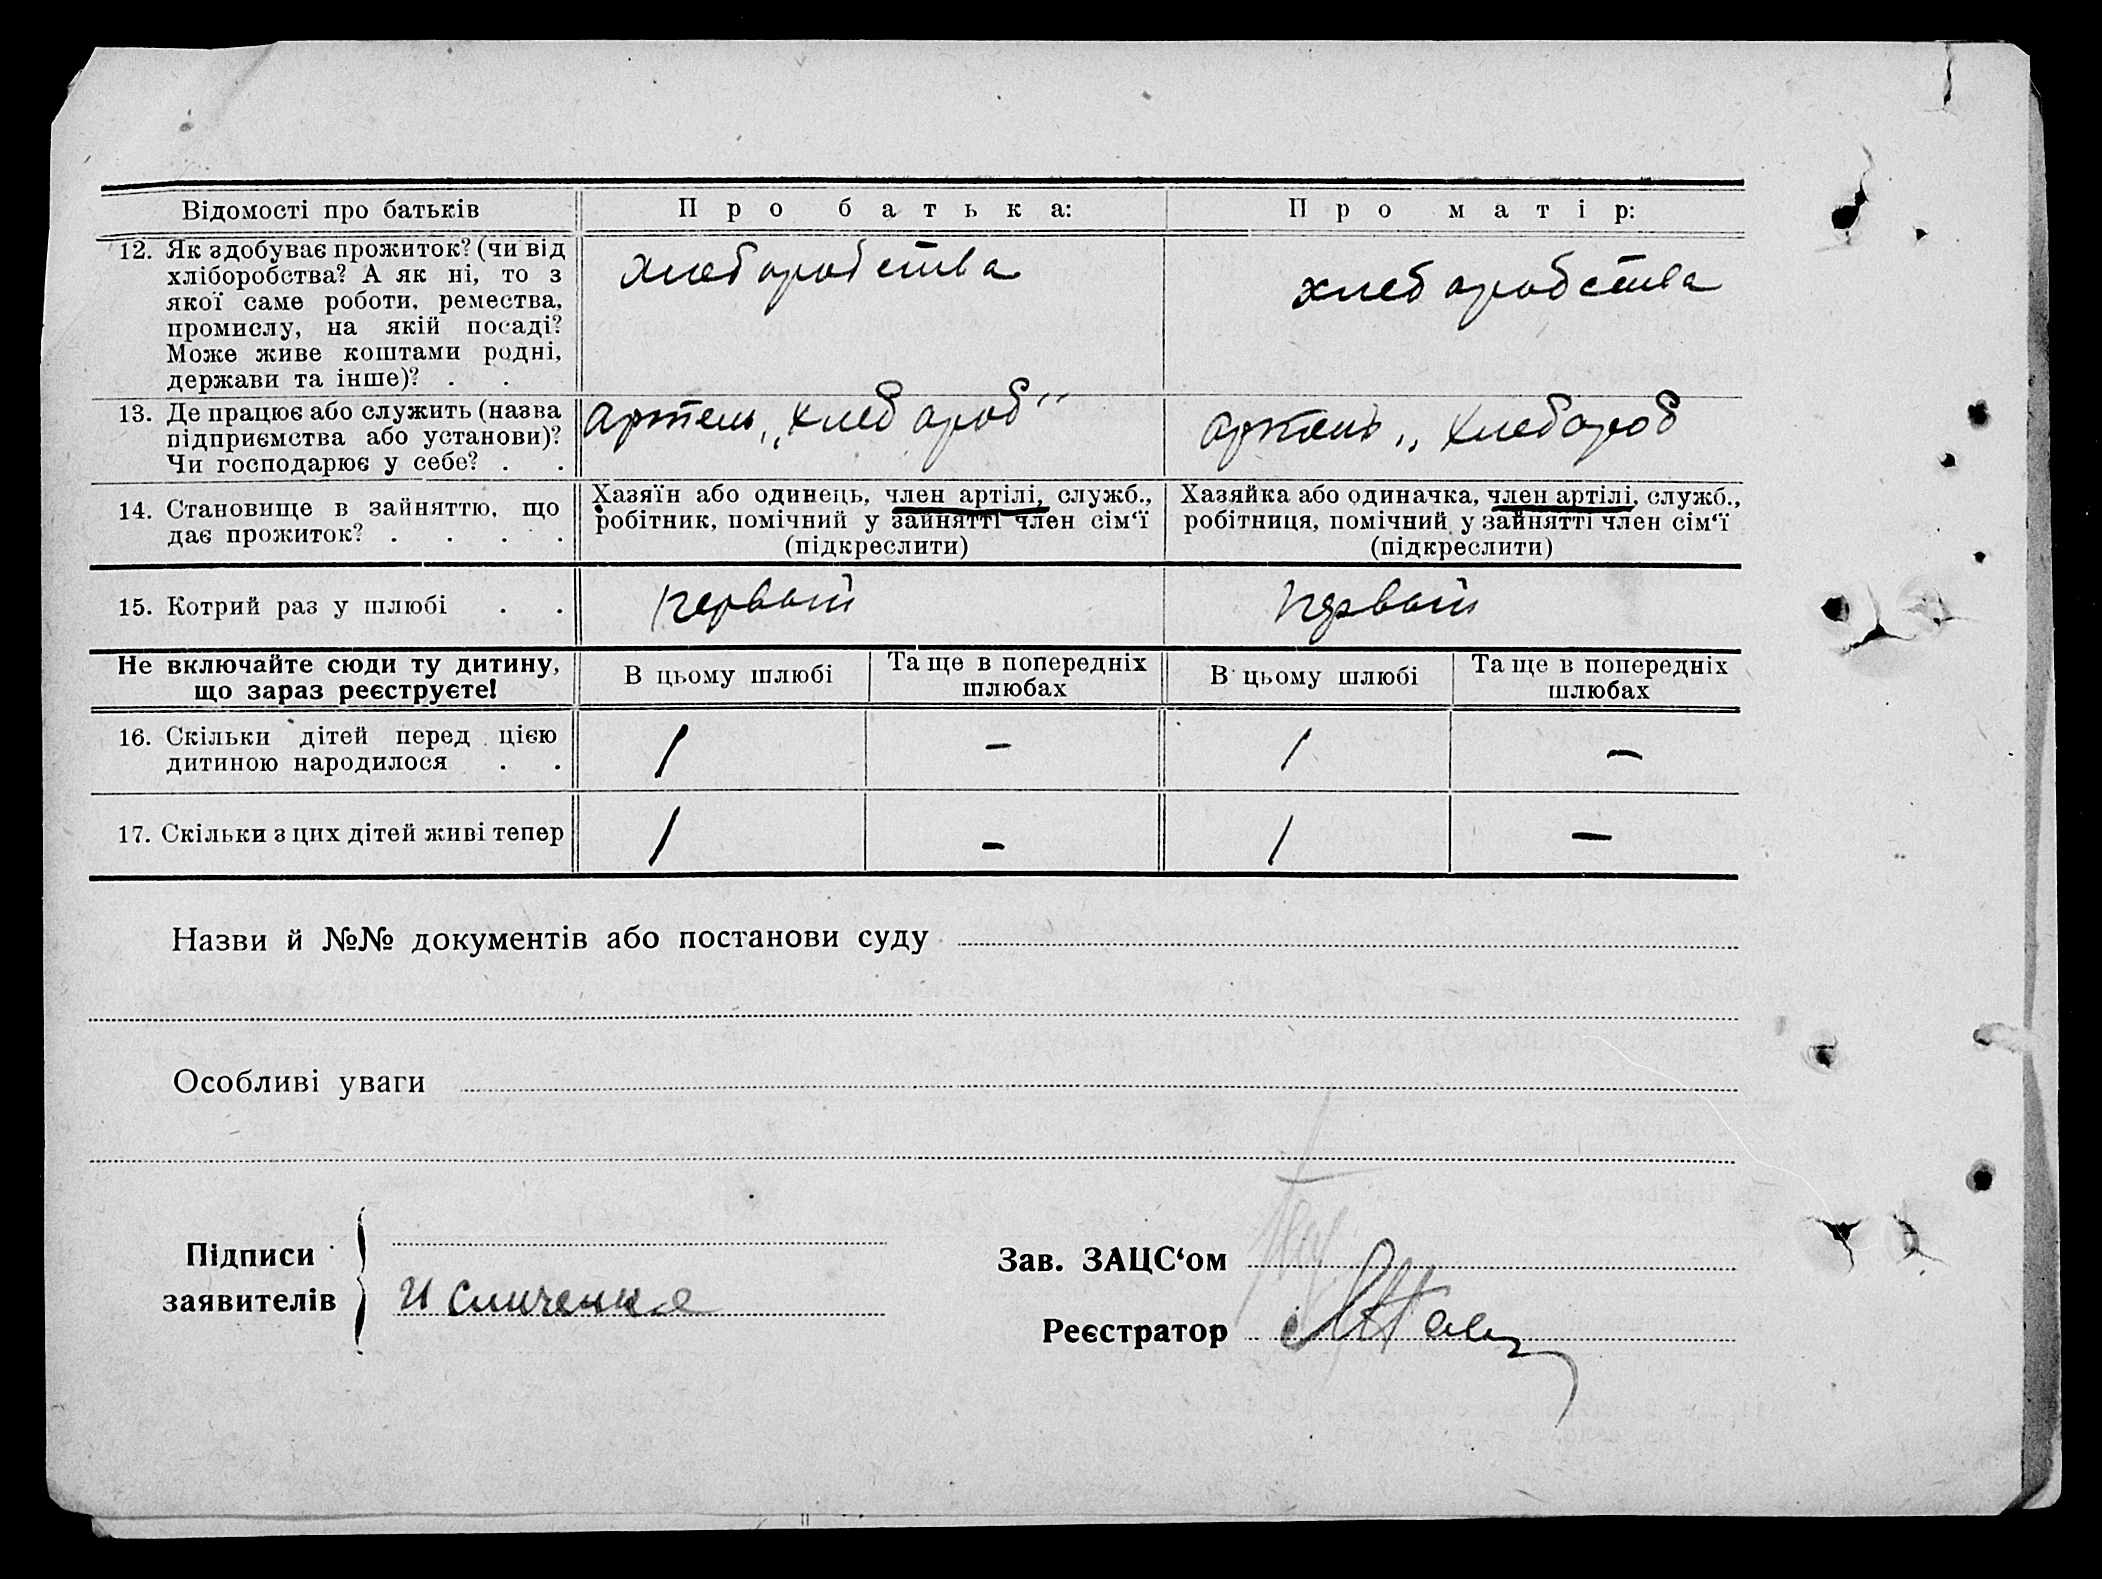 Відомості про батьків Про батька: Про матір:
12. Як здобуває прожиток? (чи від
хліборобства? А як ні, то з
якої саме роботи, ремества,
промислу, на якій посаді?
Може живе коштами родні,
держави та інше)? . .
хлеборобства
хлеборобства
13. Де працює або служить (назва
підприємства або установи)?
Чи господарює у себе? . .
артель „хлебороб“
артель „хлебороб
14. Становище в зайняттю, що
дає прожиток? . . . .
Хазяїн або одинець, член артілі, служб.,
робітник, помічний у зайнятті член сім‘ї
(підкреслити)
Хазяйка або одиначка, член артілі, служб.,
робітниця, помічний у зайнятті член сім‘ї
(підкреслити)
15. Котрий раз у шлюбі . . первый первый
Не включайте сюди ту дитину,
що зараз реєструєте!
В цьому шлюбі
Та ще в попередніх
шлюбах
В цьому шлюбі
Та ще в попередніх
шлюбах
16. Скільки дітей перед цією
дитиною народилося . .
1 – 1 –
17. Скільки з цих дітей живі тепер 1 – 1 –
Назви й №№ документів або постанови суду
Особливі уваги
Підписи
заявителів
И Сличенко
Зав. ЗАЦС‘ом
Реєстратор